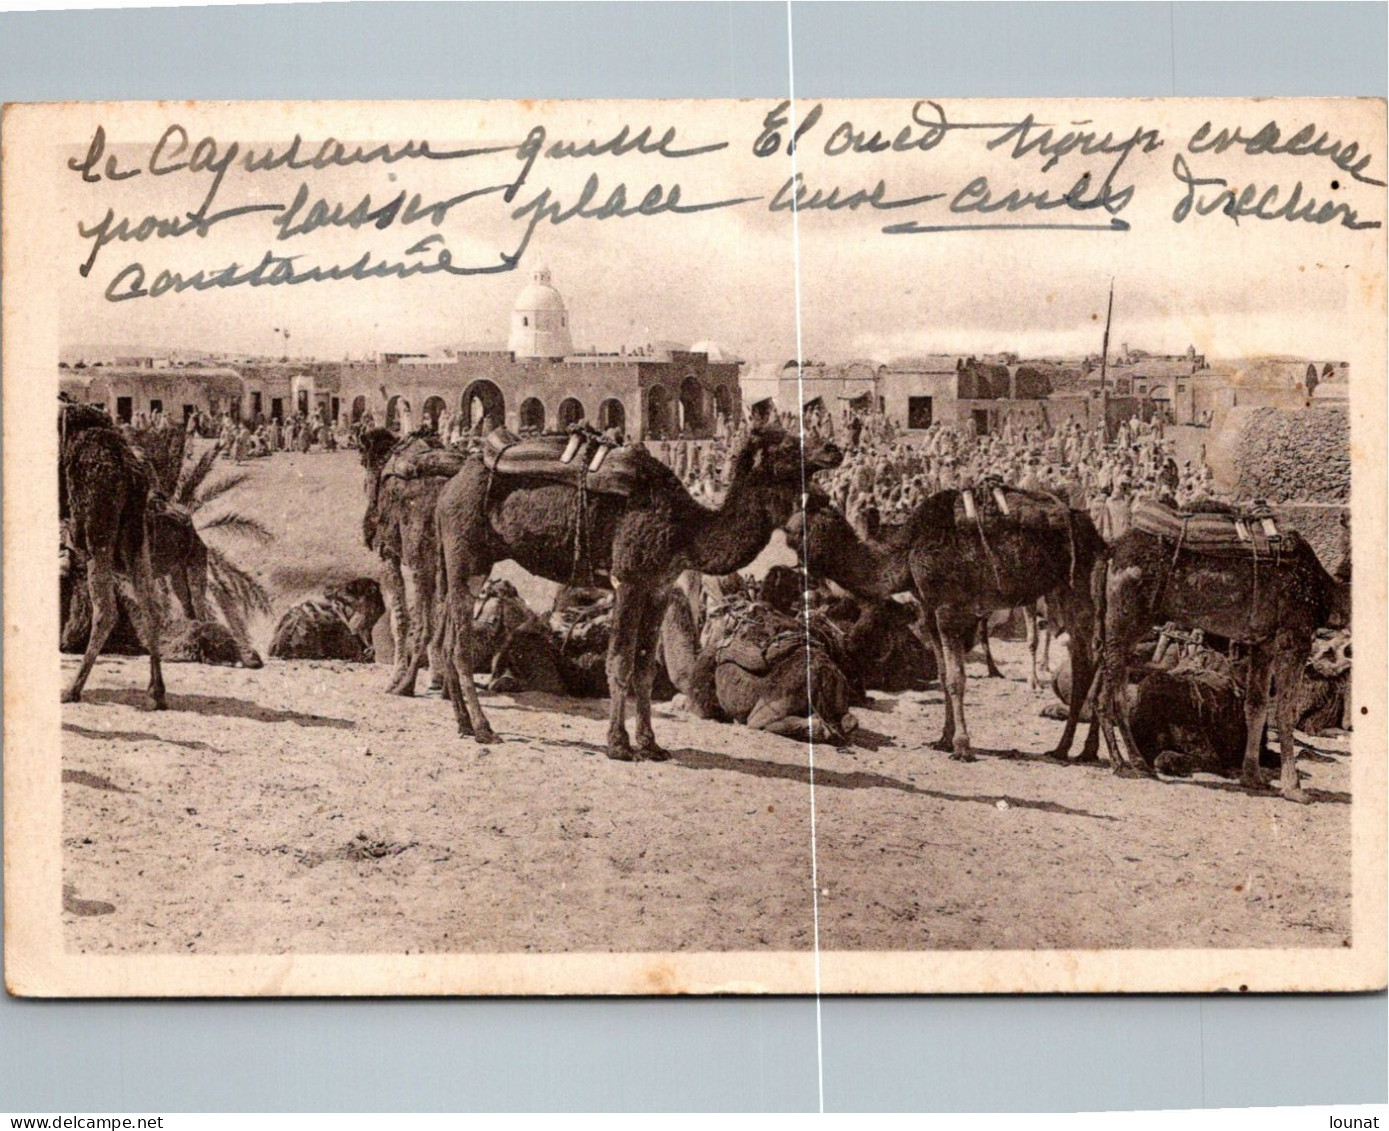 le Capitaine quitte El oued troup evacuee
pour laisser place aux civiles direction
Constantine
delcampe.net
lounat